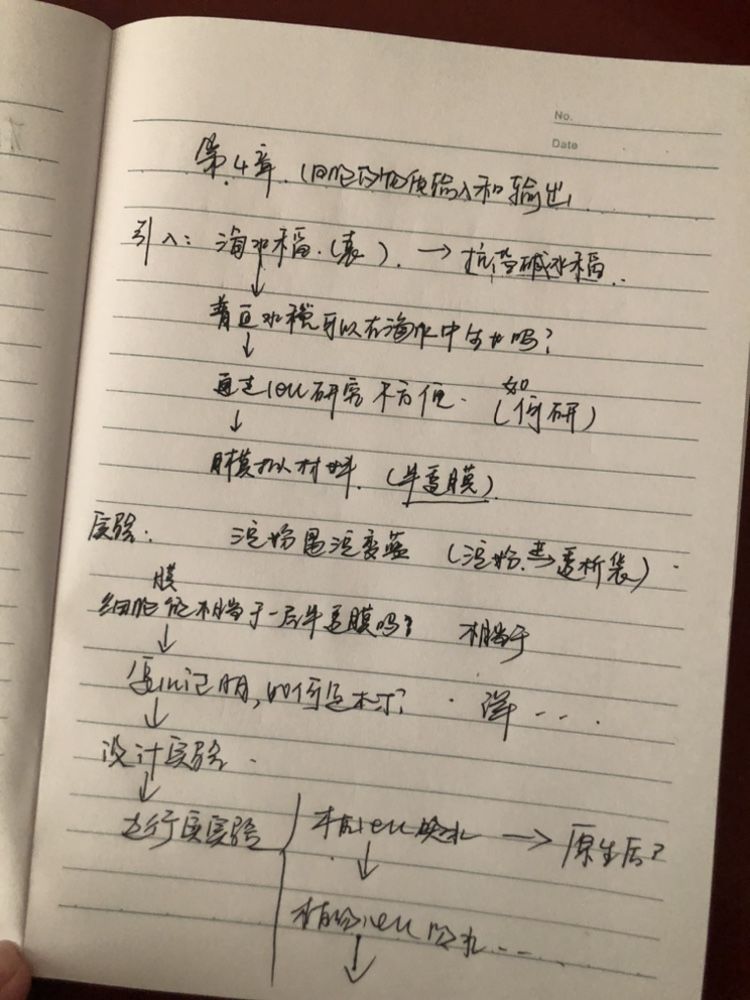 No.
Date
第4章. 细胞的物质输入和输出
引入: 海水稻.(袁). → 抗盐碱水稻.
↓
普通水稻可以在海水中生长吗?
↓
通过cell研究不方便. (如何研)
↓
用模拟材料. (半透膜).
实验: 淀粉遇碘变蓝 (淀粉 → 透析袋).
细胞膜能相当于一层半透膜吗? 相当于
↓
如何 ?
↓
设计实验.
↓
进行实验 植物cell 失水 → 原生质层?
↓
植物cell 吸水...
↓